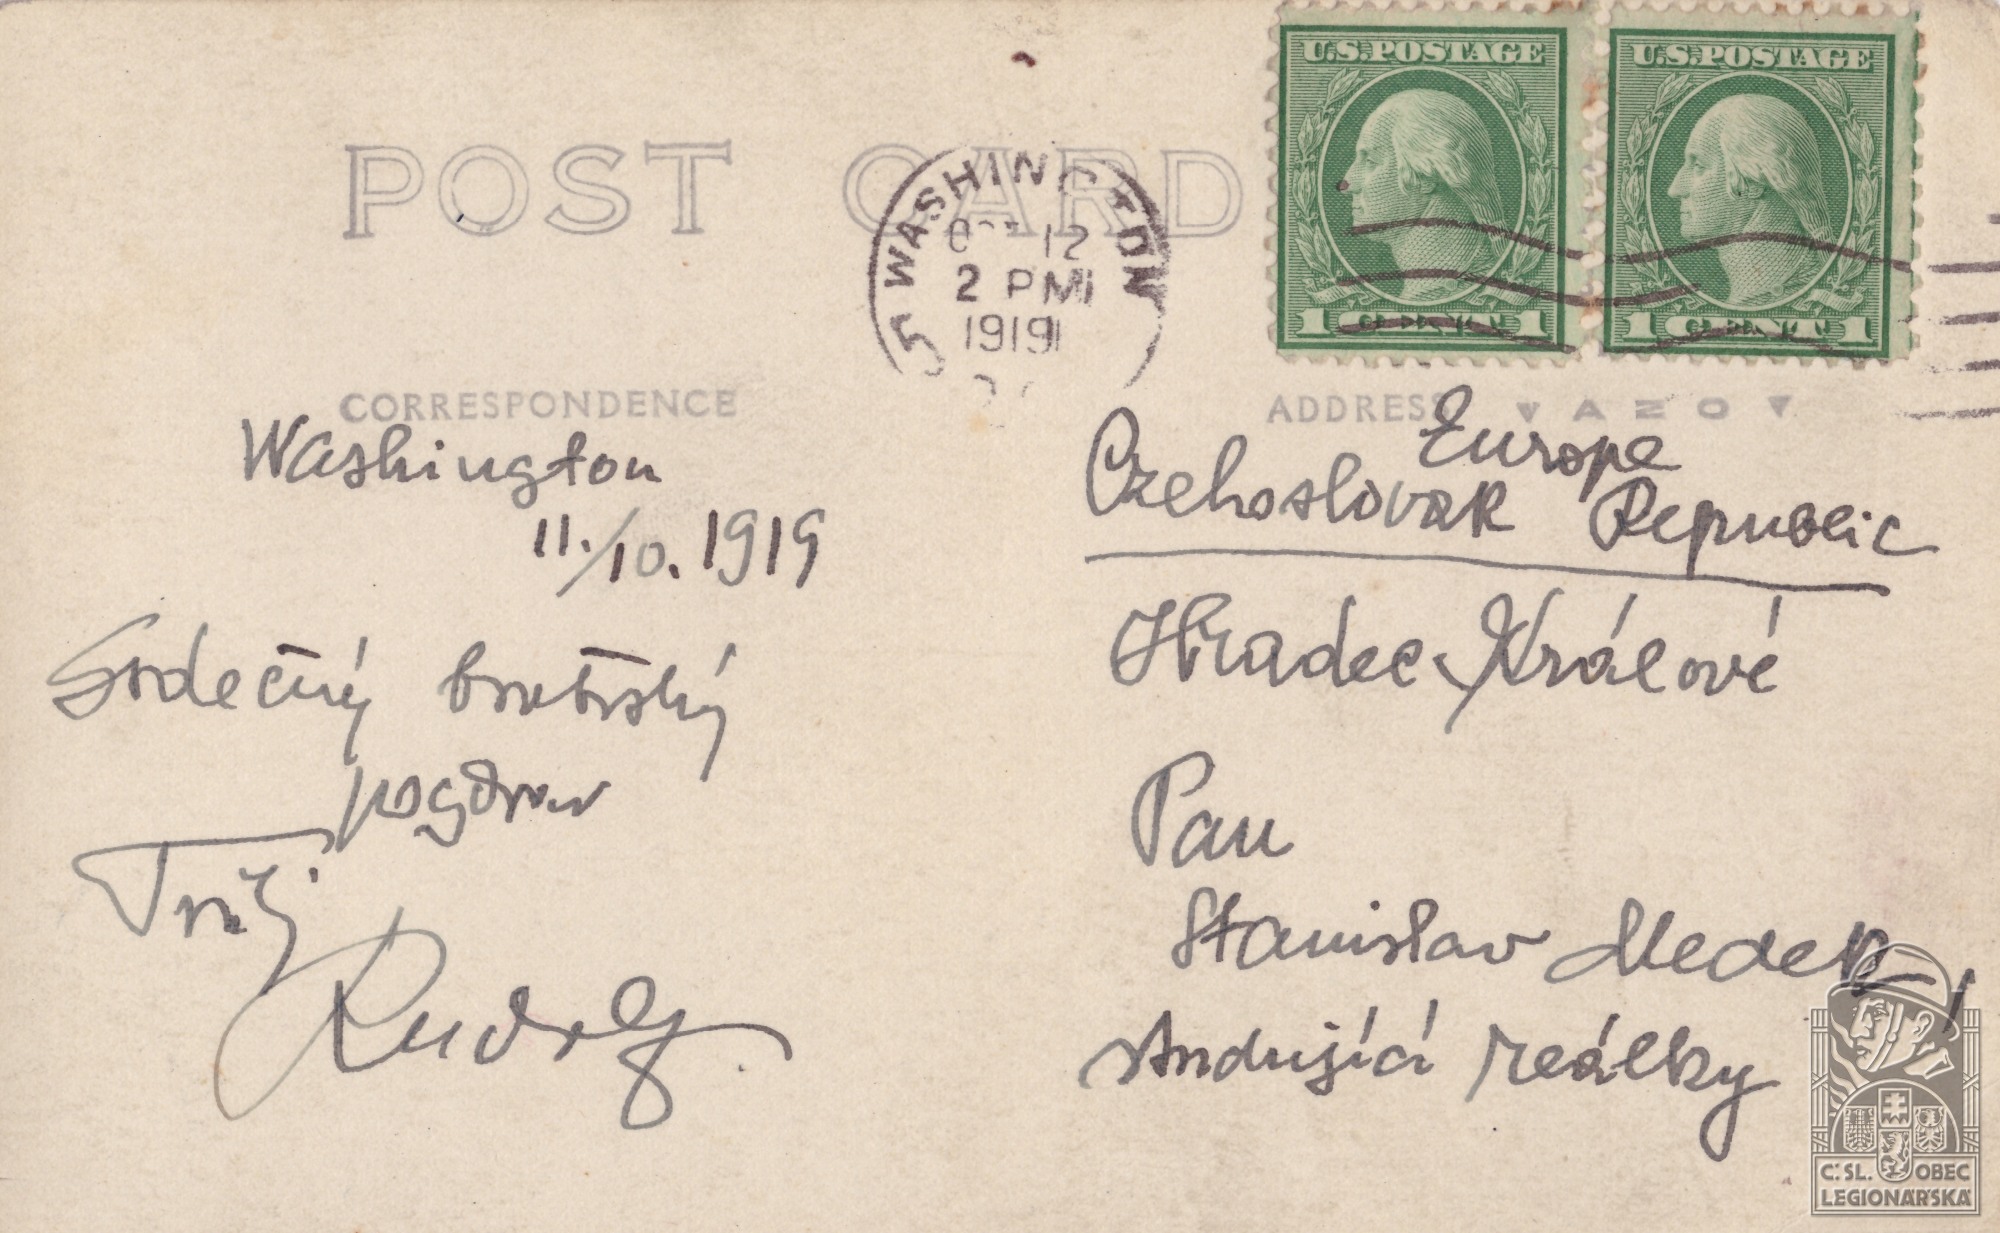 POST CARD
WASHINGTON
OCT 12
2 PM
1919
U.S. POSTAGE
1 CENT 1
U.S. POSTAGE
1 CENT 1
CORRESPONDENCE
Washington
11./10. 1919
Srdečný bratrský
pozdrav
Tvůj
Rudolf
ADDRESS
AZO
Europe
Czehoslovak Republic
Hradec Králové
Pan
Stanislav Medek,
studující reálky
Č.SL. OBEC
LEGIONÁŘSKÁ